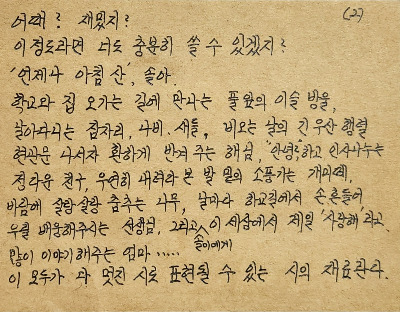 (2)
어때? 재밌지?
이 정도라면 너도 충분히 쓸 수 있겠지?
'언제나 아침 산', 솔아.
학교와 집 오가는 길에 만나는 풀잎의 이슬 방울,
날아다니는 잠자리, 나비, 새들, 비오는 날의 긴 우산 행렬
현관문 나서자 환하게 반겨 주는 해님, '안녕?'하고 인사나누는
정다운 친구, 우연히 내려다 본 발 밑의 소풍가는 개미떼,
바람에 살랑살랑 춤추는 나무, 날마다 하교길에서 손 흔들어
우릴 배웅해주시는 선생님, 그리고 솔이에게 이 세상에서 제일 '사랑해'라고
많이 이야기해주는 엄마 .....
이 모두가 다 멋진 시로 표현될 수 있는 시의 재료란다.